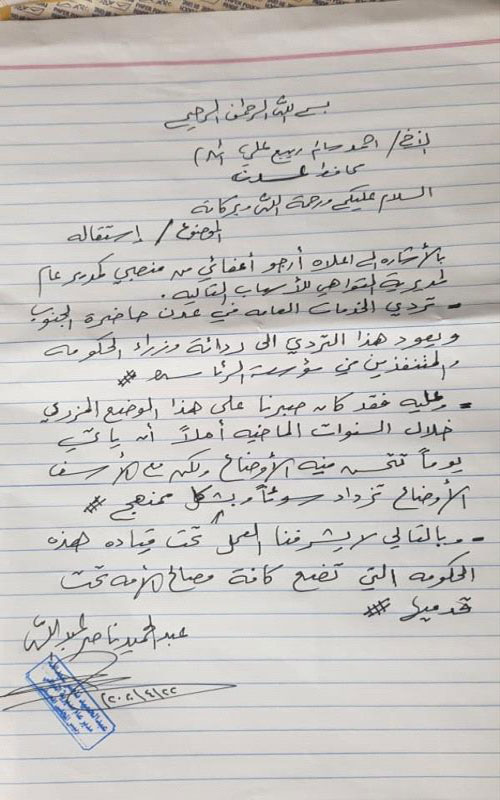 بسم الله الرحمن الرحيم
الأخ/ احمد سالم ربيع علي
محافظ عدن
السلام عليكم ورحمة الله وبركاته
الموضوع/ إستقاله
بالأشاره الى اعلاه أرجو أعفائي من منصبي كمدير عام
لمديرية التواهي للأسباب التاليه.
- تردي الخدمات العامه في عدن حاضرة الجنوب
ويعود هذا التردي الى ردائة وزراء الحكومه
والمتنفذين من مؤسسة الرئاسه #
- وعليه فقد كان صبرنا على هذا الوضع المزري
خلال السنوات الماضيه أملاً أن يأتي
يوماً تتحسن فيه الأوضاع ولكن مع الأسف
الأوضاع تزداد سوئاً وبشكل ممنهج #
- وبالتالي لا يشرفنا العمل تحت قياده هذه
الحكومه التي تضع كافة مصالح الأمه تحت
قدميها #
عبدالحميد ناصر